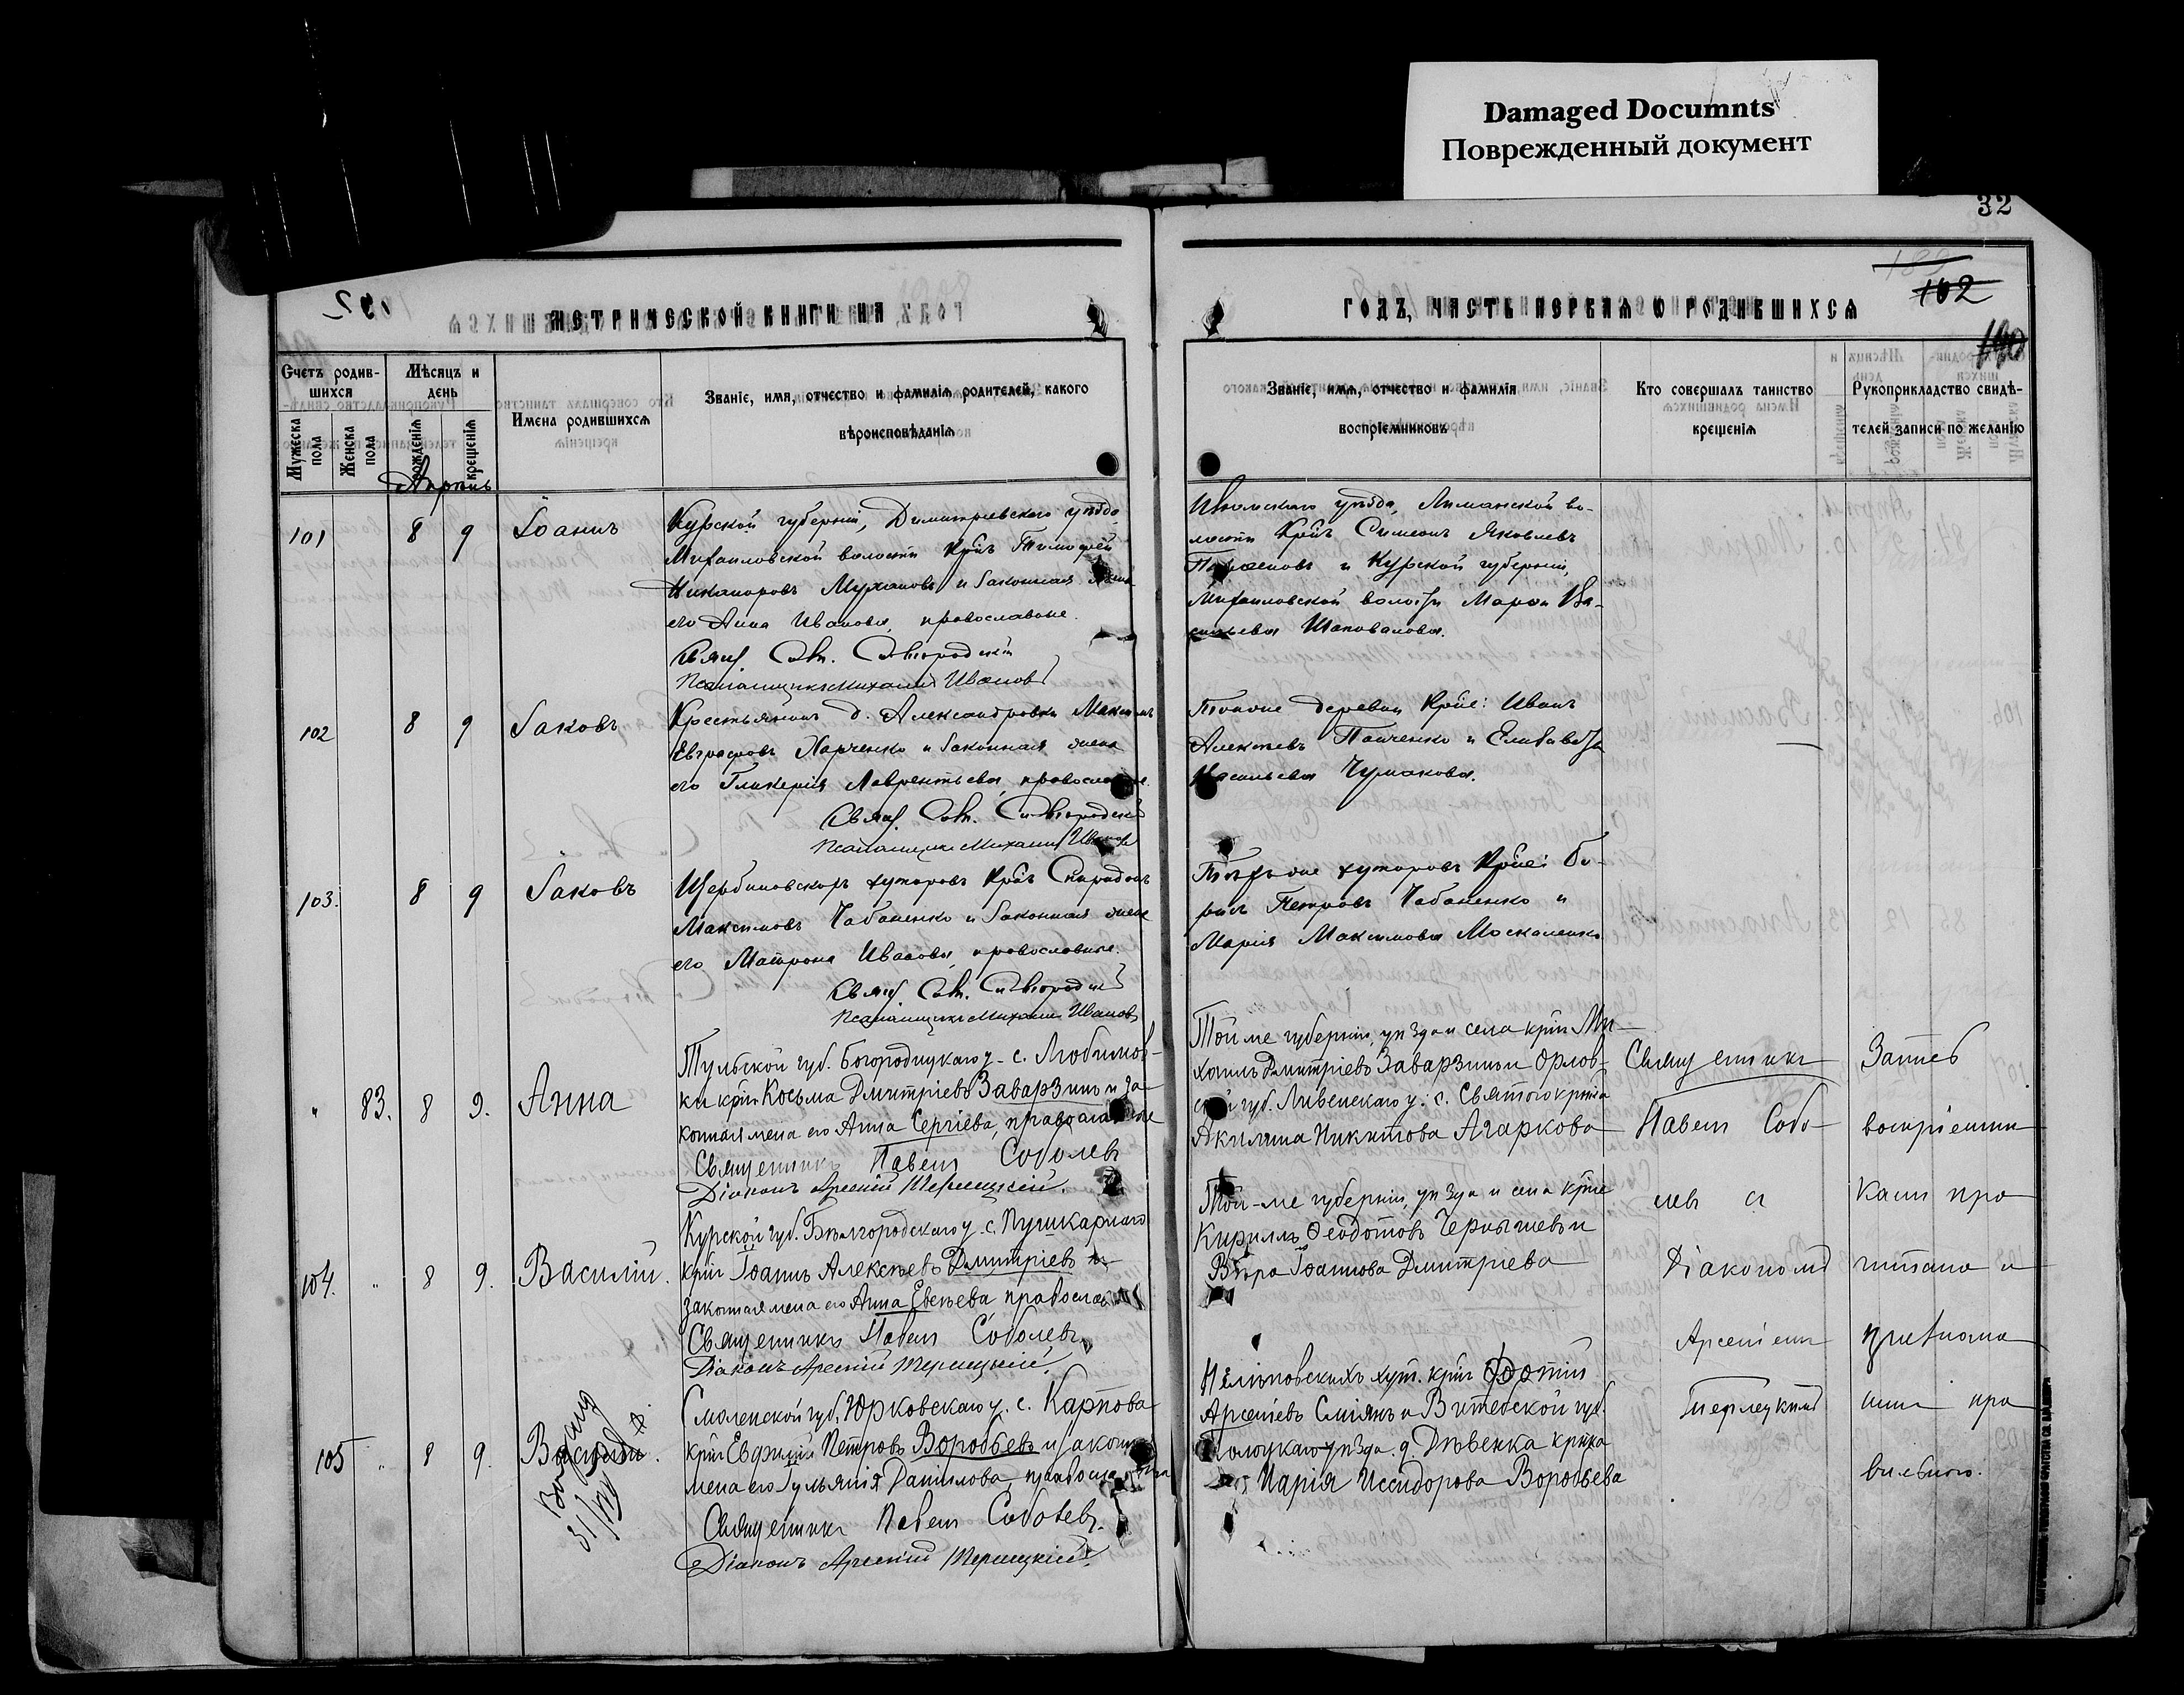 Damaged Documnts
Поврежденный документ
32
102
МЕТРИЧЕСКОЙ КНИГИ НА
ГОДЪ, ЧАСТЬ ПЕРВАЯ О РОДИВШИХСЯ
Счетъ родившихся
Мужеска пола
Женска пола
Мѣсяцъ и день
рожденія
крещенія
Имена родившихся
Званіе, имя, отчество и фамилія родителей, какого
вѣроисповѣданія
Званіе, имя, отчество и фамилія
воспріемниковъ
Кто совершалъ таинство
крещенія
Рукоприкладство свидѣ-
телей записи по желанію
Апрѣль
101 8 9 Іоаннъ
Курской губерніи, Димитріевского уѣзда,
Михаиловской волости Крнъ Тимофей
Никаноровъ Мухановъ и законная жена
его Анна Иванова, православные.
Свящ.
Псаломщикъ Михаилъ Ивановъ
уѣзда, Лиманской во-
лости Крнъ Симеонъ Яковлевъ
и Курской губерніи,
Михаиловской волости Марфа Ва-
сильева Шаповалова.
102 8 9 Іаковъ
Крестьянинъ д. Александровки Максимъ
Евграфовъ Харченко и законная жена
его Гликерія Лаврентьева, православные.
Свящ.
Псаломщикъ Михаилъ Ивановъ
Тойже деревни Крне: Иванъ
Алексѣевъ Панченко и Елизавета
Васильева Чумакова.
103. 8 9 Іаковъ
Щербиновскихъ хуторовъ Крнъ Спиридонъ
Максимовъ Чабаненко и законная жена
его Матрона Иванова, православные.
Свящ.
Псаломщикъ Михаилъ Ивановъ
Тѣхже хуторовъ Крне: Бо-
рисъ Петровъ Чабаненко и
Марія Максимова Москаленко
" 83. 8 9. Анна
Тульской губ. Богородицкаго у. с. Любимов-
ки крнъ Косьма Дмитріевъ Заварзинъ и за-
конная жена его Анна Сергіева, православные
Священникъ Павелъ Соболевъ
Діаконъ Арсеній Терлецкій.
Той же губерніи, уѣзда и села крнъ Ми-
хаилъ Дмитріевъ Заварзинъ и Орлов-
ской губ. Ливенскаго у. с. Святого крнка
Акилина Никитова Агаркова
104. " 8 9. Василій.
Курской губ. Бѣлгородскаго у. с. Пушкарнаго
крнъ Іоаннъ Алексѣевъ Дмитріевъ и
законная жена его Анна Евсѣева православ
Священникъ Павелъ Соболевъ
Діаконъ Арсеній Терлецкій.
Той-же губерніи, уѣзда и села крне
Кириллъ Ѳеодотовъ Чернышевъ и
Вѣра Іоаннова Дмитріева
105 " 8 9.
Смоленской губ. Юрковскаго у. с. Карпова
крнъ Евфимій Петровъ Воробьевъ и законная
жена его Іульянія Данилова,
Священникъ Павелъ Соболевъ.
Діаконъ Арсеній Терлецкій.
Нелѣповскихъ хут. крнъ Фотій
Арсеніевъ Сміянъ и Витебской губ.
Полоцкаго уѣзда д. Дѣвенка крнка
Марія Иссидорова Воробьева
Священникъ
Павелъ Собо-
левъ съ
Діакономъ
Арсеніемъ
Терлецкимъ
воспріемни
ками про
читана и
при
вильною.